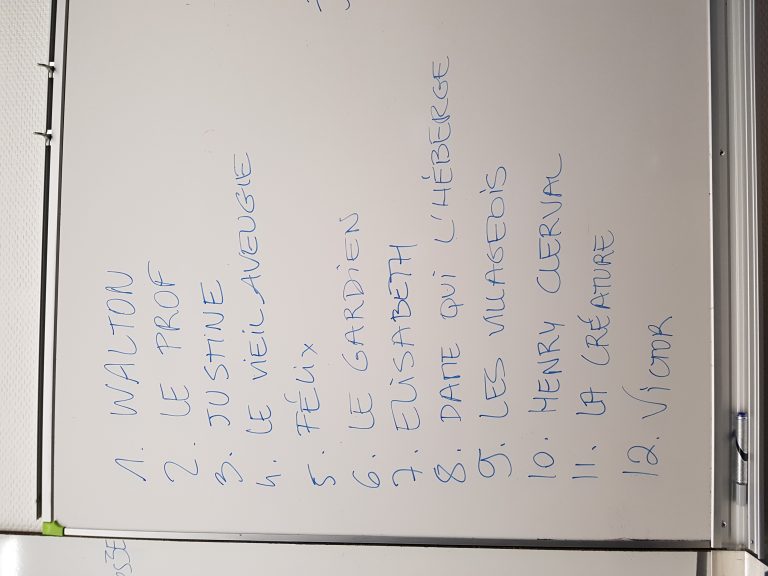 1. WALTON
2. LE PROF
3. JUSTINE
4. LE VIEIL AVEUGLE
5. FÉLIX
6. LE GARDIEN
7. ELISABETH
8. DAME QUI L'HÉBERGE
9. LES VILLAGEOIS
10. HENRY CLERVAL
11. LA CRÉATURE
12. VICTOR